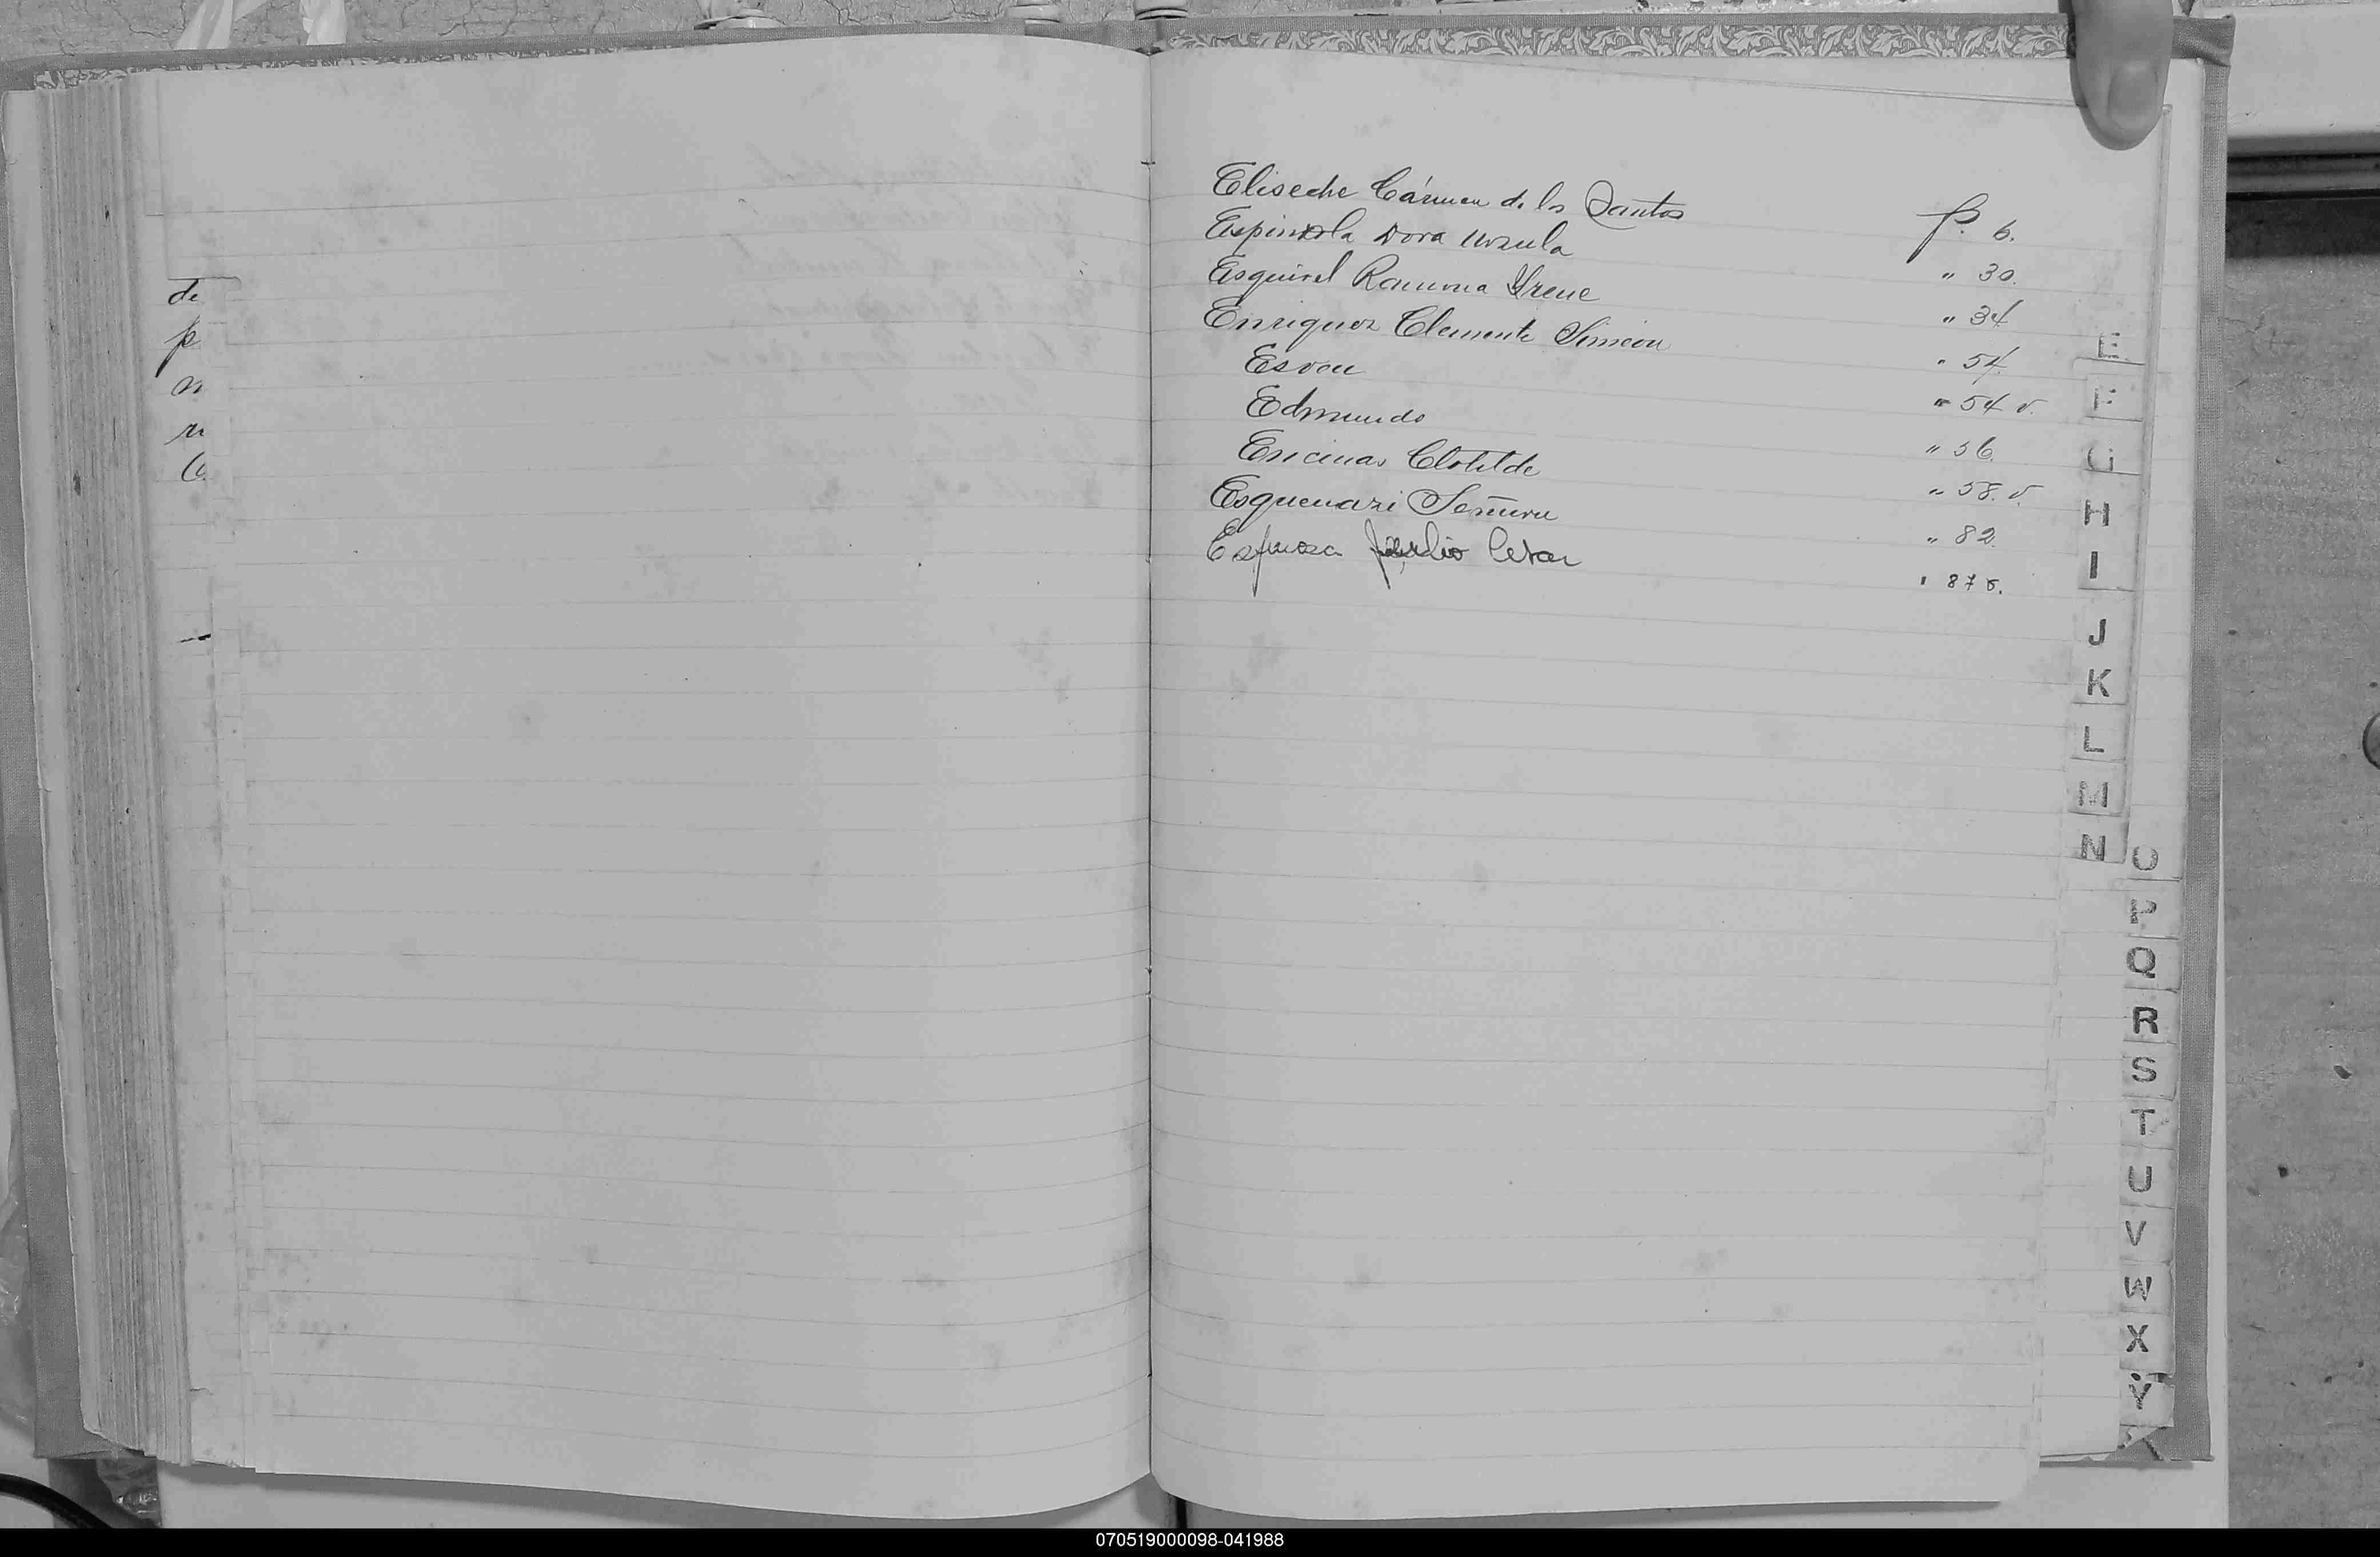 de
p
n
r
Eliseche Cármen de los Santos p. 6.
Espinola Dora Ursula " 30.
Esquivel Ramona Yrene " 34
Enriquez Clemente Simeon " 54
Esvou " 54 v.
Edmundo " 56.
Encinas Clotilde " 58. v.
Esquenazi " 82.
Espinosa Julio Cesar " 87 v.
E
F
G
H
I
J
K
L
M
N
O
P
Q
R
S
T
U
V
W
X
Y
070519000098-041988